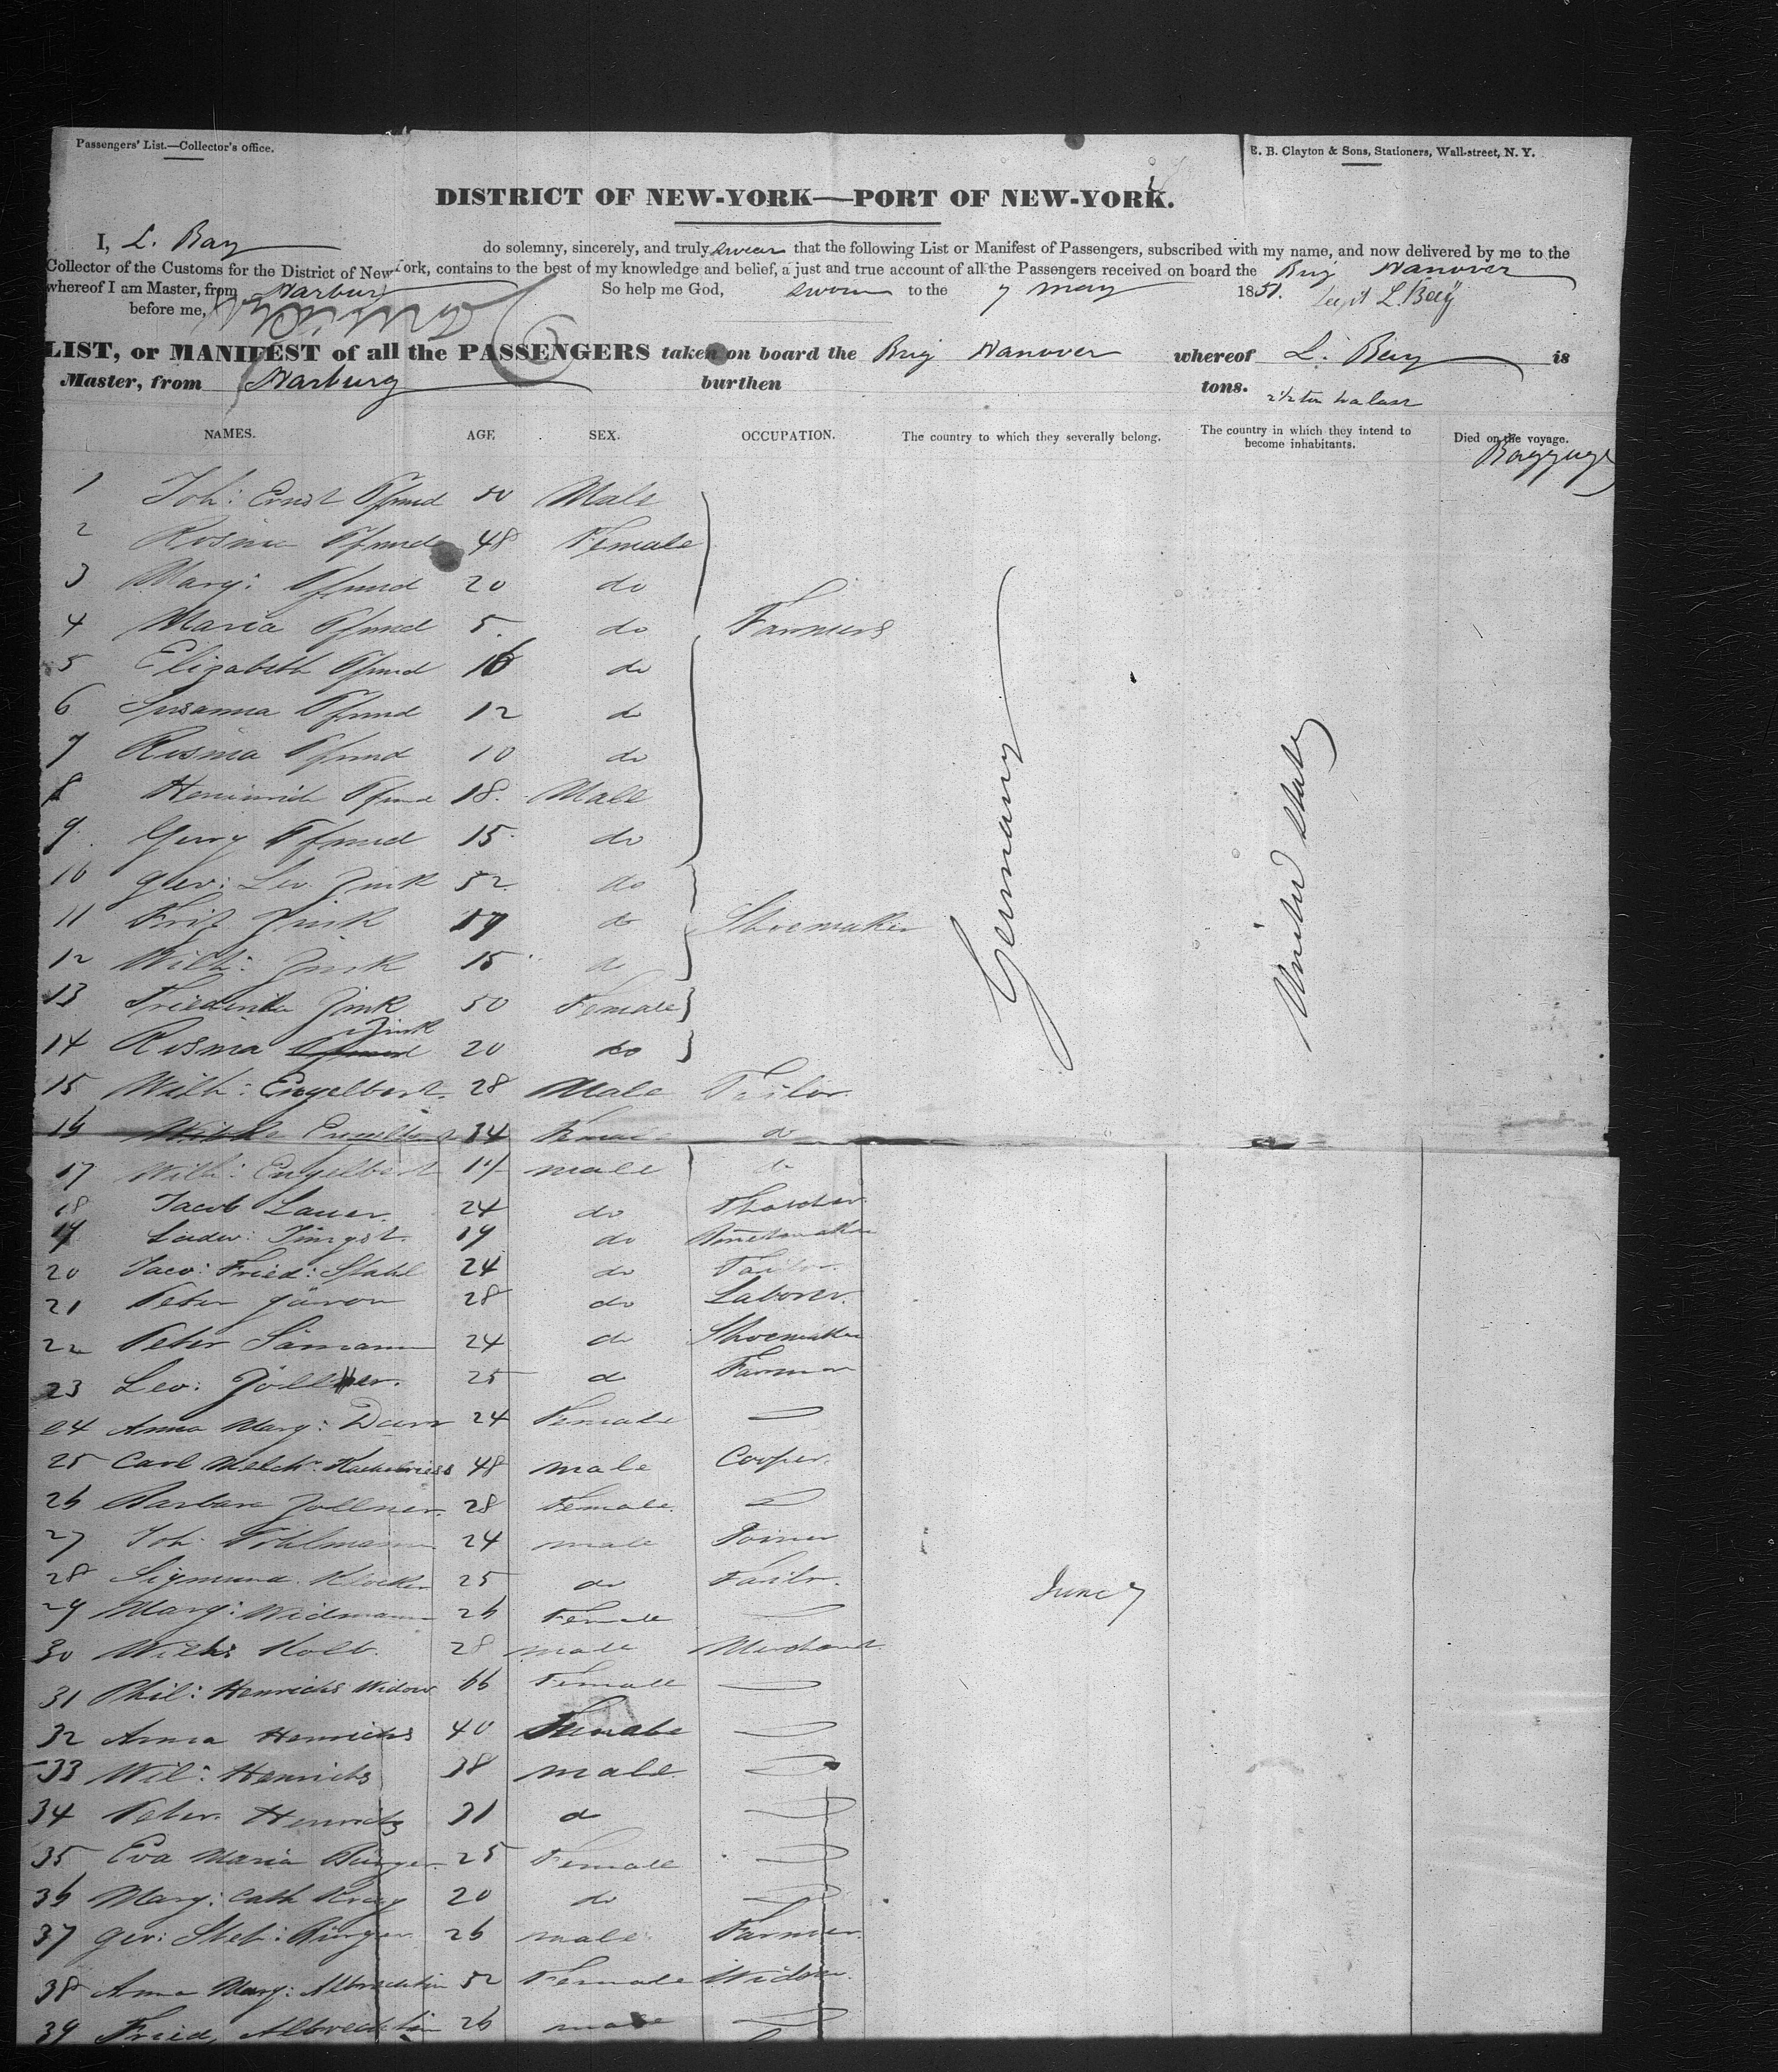 Passengers' List.—Collector's office.
E. B. Clayton & Sons, Stationers, Wall-street, N. Y.
DISTRICT OF NEW-YORK—PORT OF NEW-YORK.
I, L. Bay do solemny, sincerely, and truly swear that the following List or Manifest of Passengers, subscribed with my name, and now delivered by me to the
Collector of the Customs for the District of New York, contains to the best of my knowledge and belief, a just and true account of all the Passengers received on board the Brig Hanover
whereof I am Master, from Harburg So help me God, sworn to the 7 May 1851. L. Bay
before me,
LIST, or MANIFEST of all the PASSENGERS taken on board the Brig Hanover whereof L. Bay is
Master, from Harburg burthen tons.
NAMES. AGE SEX. OCCUPATION. The country to which they severally belong. The country in which they intend to become inhabitants. Died on the voyage.
Baggage
1 Joh: Ernst Pfund 50 Male
2 Rosina Pfund 48 Female
3 Marg: Pfund 20 do
4 Maria Pfund 5 do Farmers
5 Elizabeth Pfund 16 do
6 Susanna Pfund 12 do
7 Rosina Pfund 10 do
8 Heinrich Pfund 18. Male
9. Georg Pfund 15 do
10 Geo: Leo. Zink 52 do
11 Fritz Zink 19 do Shoemaker
12 Wilh: Zink 15 do
13 Friedrika Zink 50 Female
14 Rosina Pfund Zink 20 do
15 Wilh: Engelbert. 28 Male Tailor
16 Engelbert 34 do
17 Wilh: Engelbert male do
18 Jacob Lauer 24 do
19 Ludw: Jüngst. 19 do
20 Jaco: Fried: Stahl 24 do Tailor
21 Peter 28 do Laborer.
22 Peter Sämann 24 do Shoemaker
23 Leo: Zöllner. 25 do Farmer
24 Anna Marg: 24 Female
25 Carl Melch: 48 male Cooper.
26 Barbara Zollner 28 Female.
27 Joh: Pöhlmann 24 male Joiner
28 Sigmund 25 do Tailor.
29 Marg: Widmann 26 Female
30 Kolb. 28 male Merchant
31 Phil: Henrichs Widow 66 Female
32 Anna Henrichs 40 Female
33 Wil: Henrichs 38 male
34 Peter Henrichs 31 do
35 Eva Maria Bürger 25 Female
36 Marg: Cath 20 do
37 Geo: Bürger 26 male Farmer.
38 Anna Marg: Albrechtin 52 Female Widow.
39 Fried Albrechtin 26 male
Germany
United States
June 7